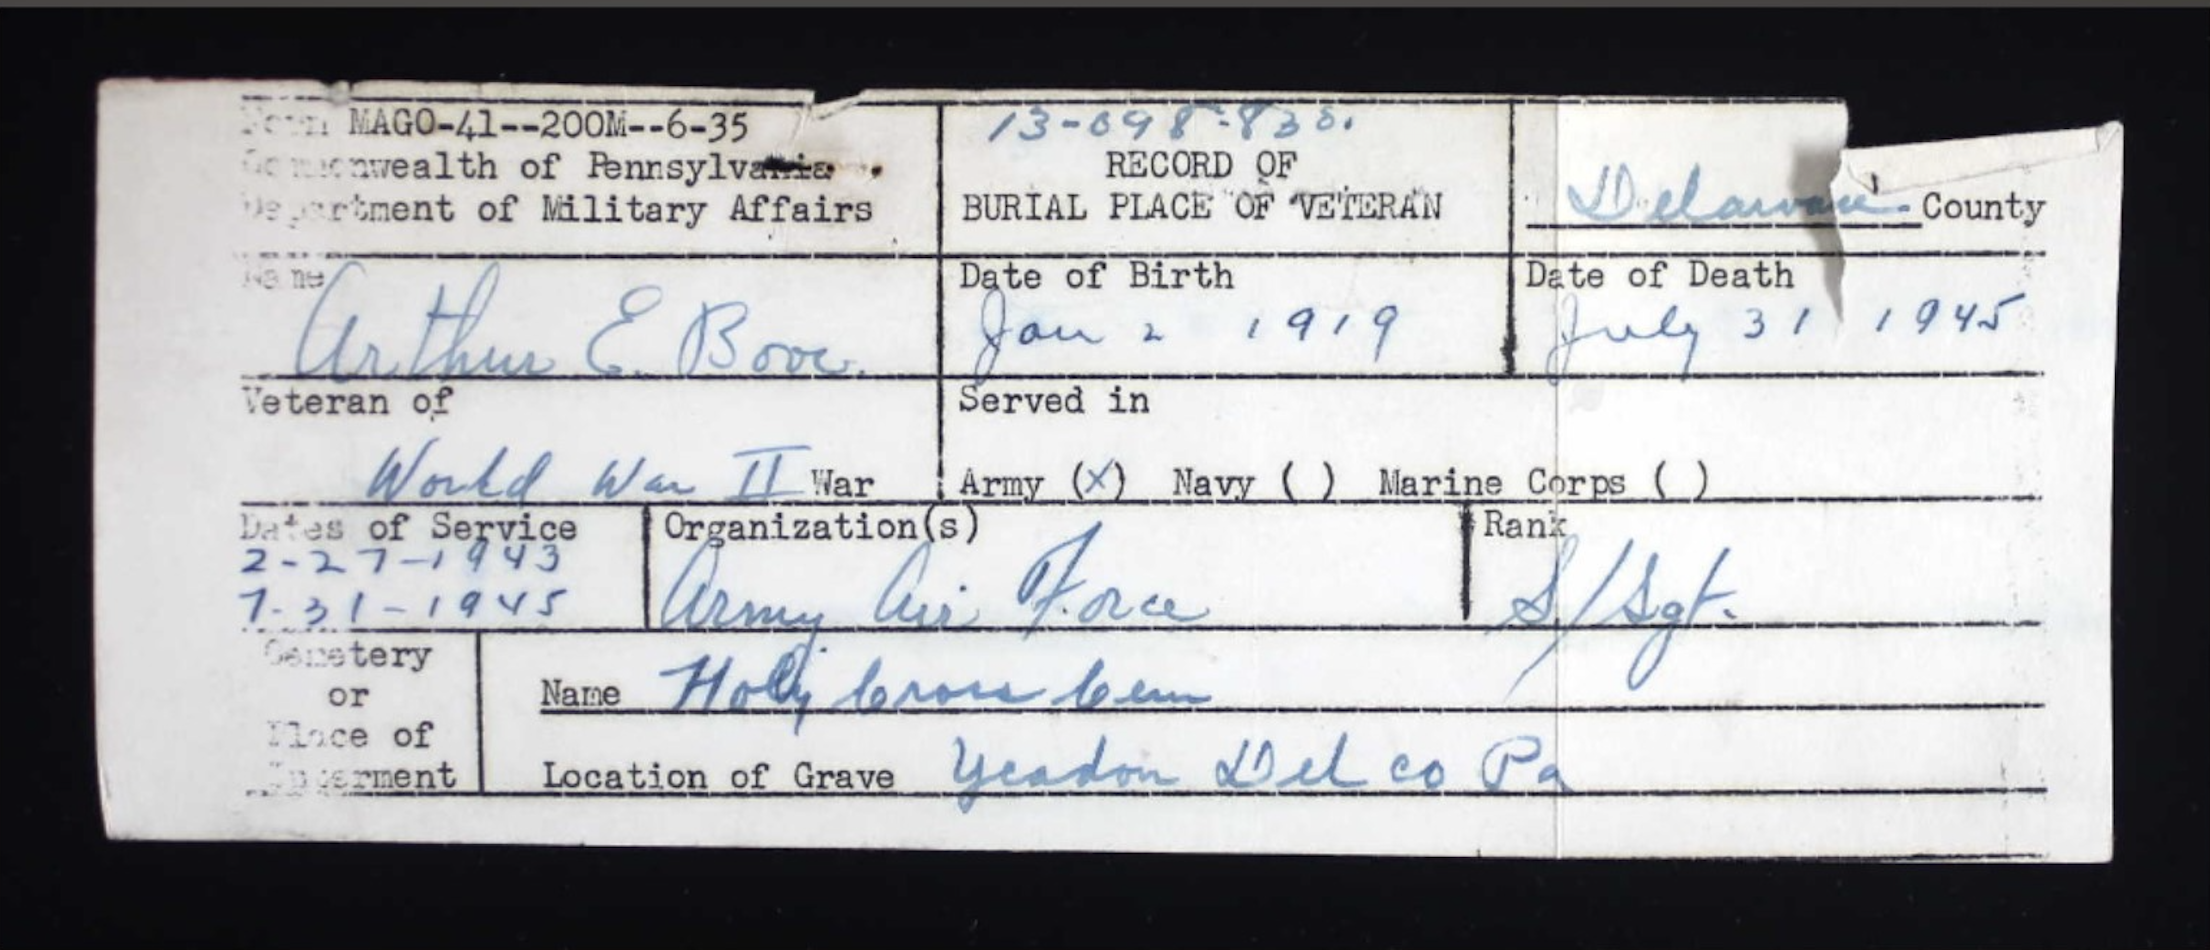 Form MAGO-41--200M--6-35
Commonwealth of Pennsylvania
Department of Military Affairs
13-098-830.
RECORD OF
BURIAL PLACE OF VETERAN
Delaware County
Name
Arthur E. Bove.
Date of Birth
Jan 2 1919
Date of Death
July 31 1945
Veteran of
World War II War
Served in
Army (X) Navy ( ) Marine Corps ( )
Dates of Service
2-27-1943
7-31-1945
Organization(s)
Army Air Force
Rank
S/Sgt.
Cemetery
or
Place of
Interment
Name Holy Cross Cem
Location of Grave Yeadon Del co Pa